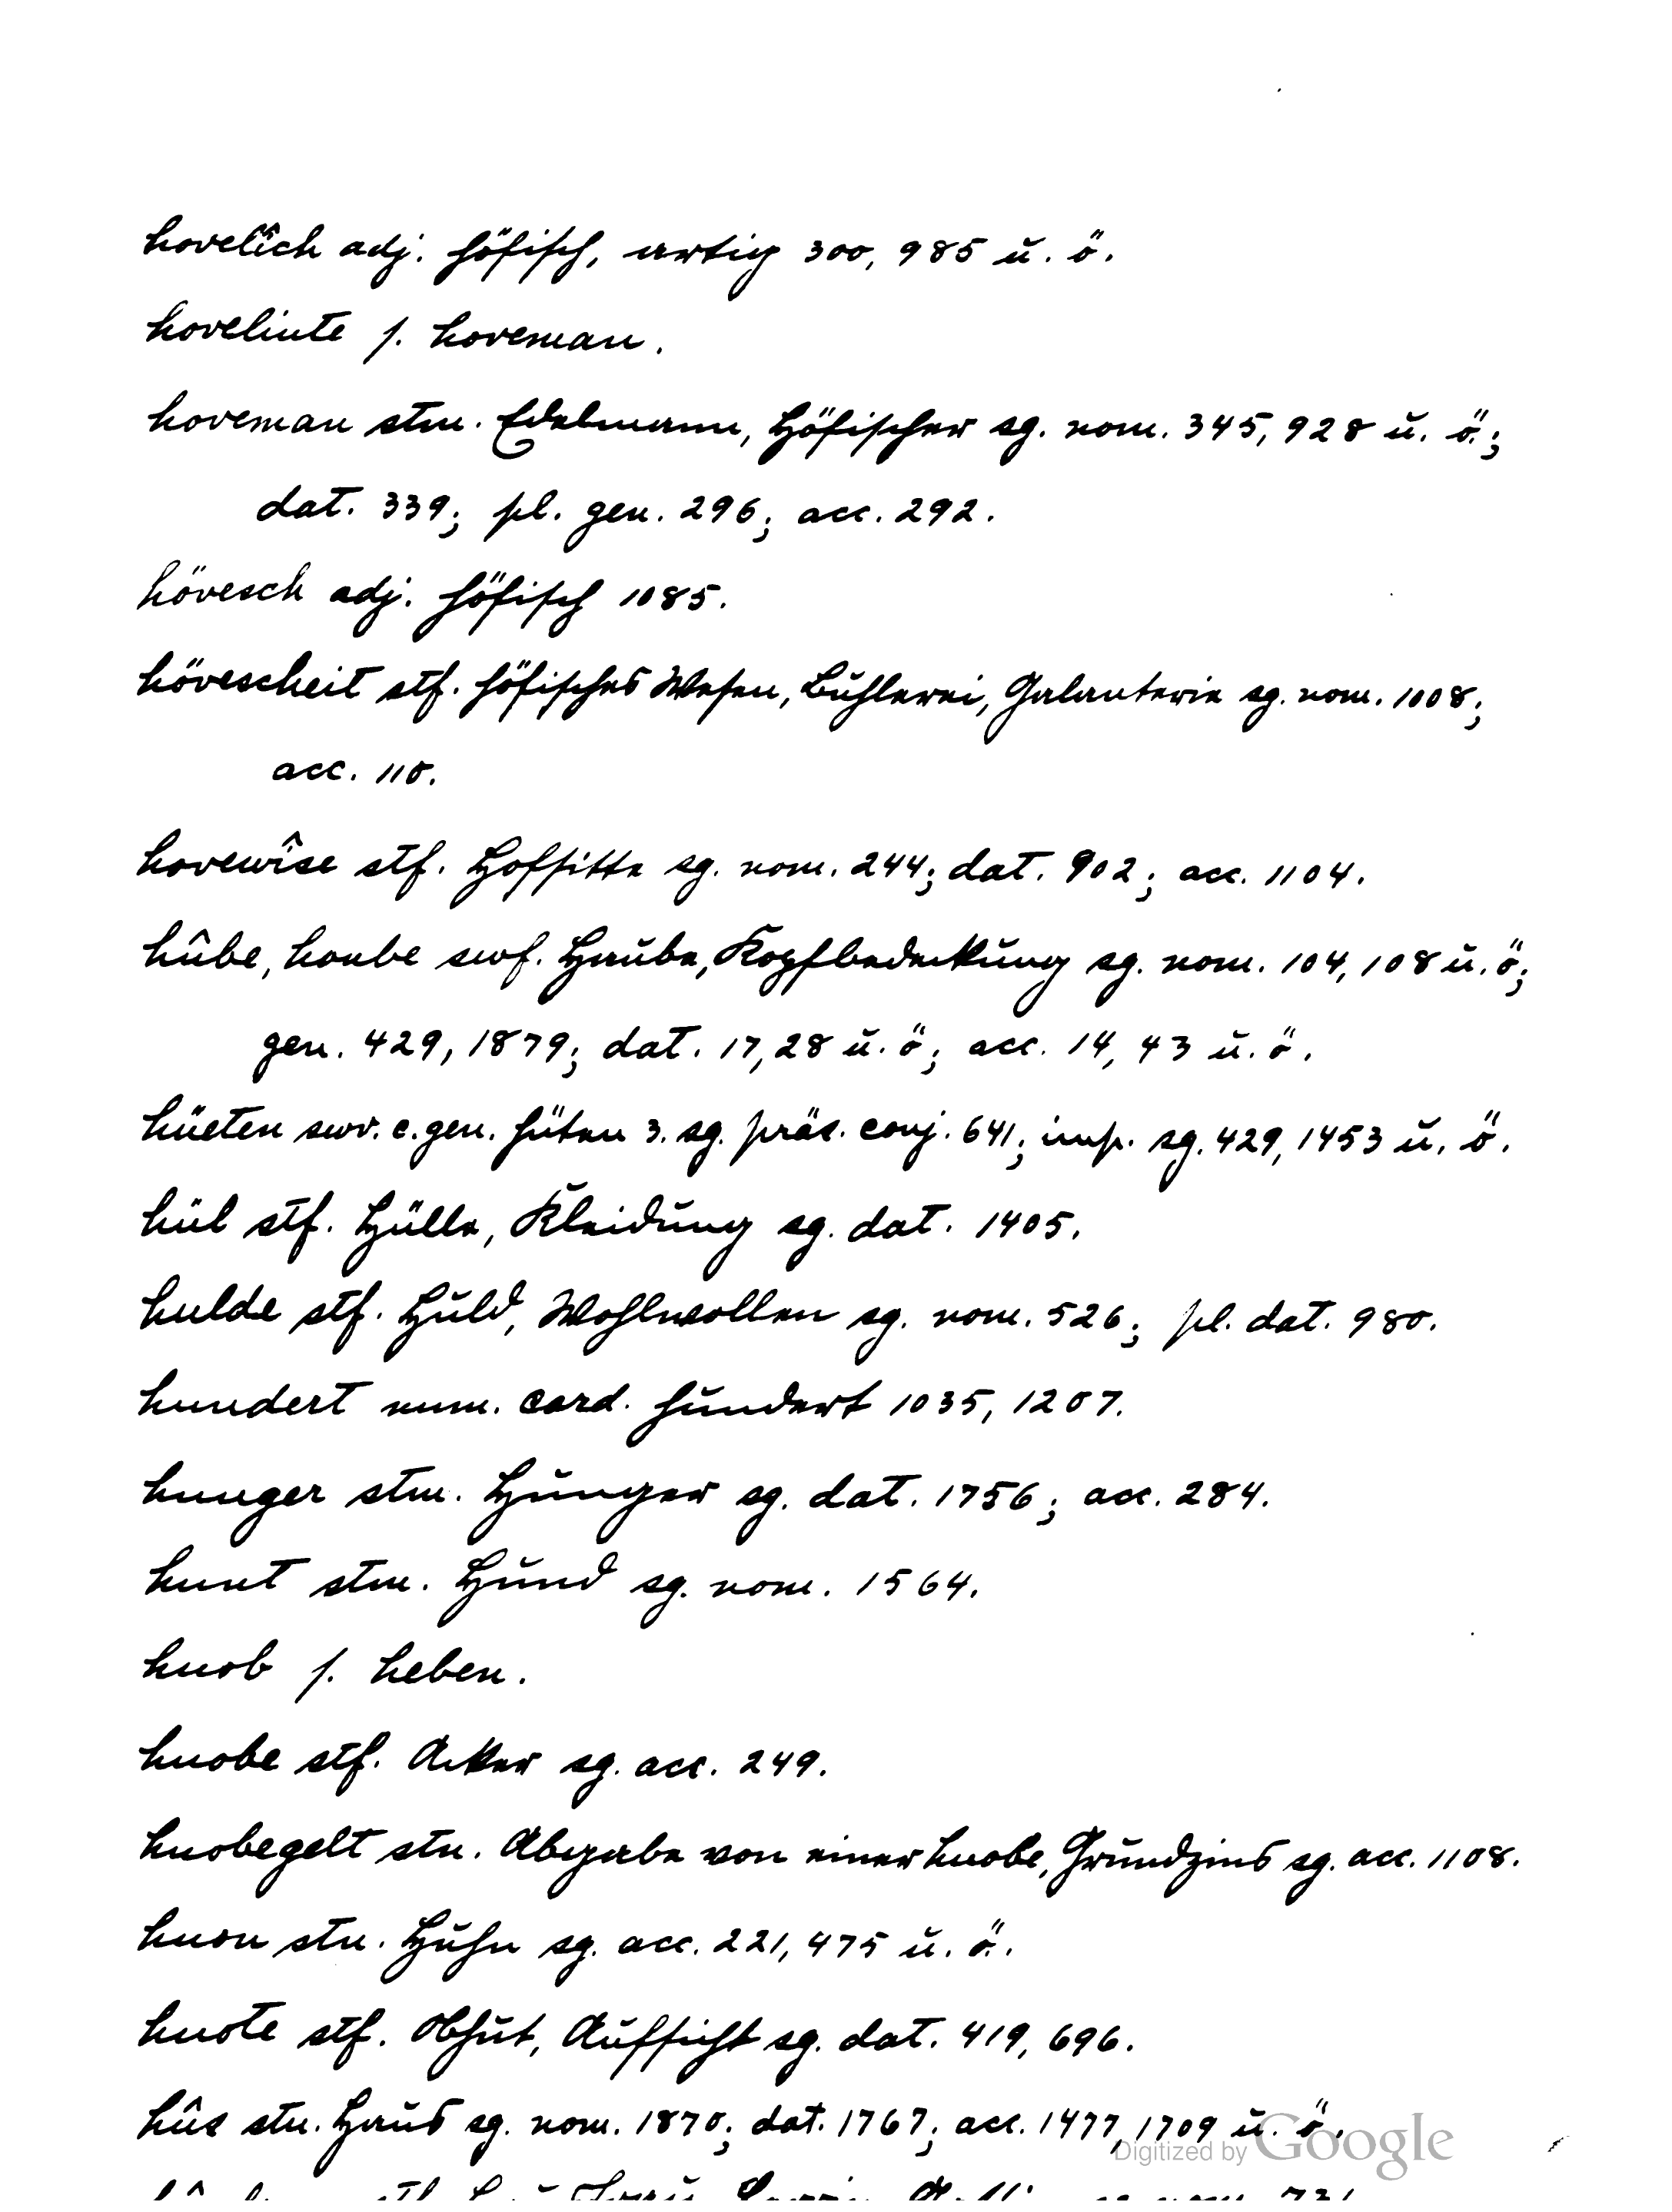 hovelîch adj. höfisch, artig 300, 985 u. ö.
hoveliute s. hoveman.
hoveman stm. Edelmann, Höfischer sg. nom. 345, 928 u. ö.;
dat. 339; pl. gen. 296; acc. 292.
hövesch adj. höfisch 1085.
hövescheit stf. höfisches Wesen, Buhlerei, Galanterie sg. nom. 1008;
acc. 110.
hovewîse stf. Hofsitte sg. nom. 244; dat. 902; acc. 1104.
hûbe, hoube swf. Haube, Kopfbedeckung sg. nom. 104, 108 u. ö;
gen. 429, 1879; dat. 17, 28 u. ö; acc. 14, 43 u. ö.
hüeten swv. c. gen. hüten 3. sg. präs. conj. 641; imp. sg. 429, 1453 u. ö.
hül stf. Hülle, Kleidung sg. dat. 1405.
hulde stf. Huld, Wohlwollen sg. nom. 526; pl. dat. 980.
hundert num. card. hundert 1035, 1207.
hunger stm. Hunger sg. dat. 1756; acc. 284.
hunt stm. Hund sg. nom. 1564.
huob s. heben.
huobe stf. Acker sg. acc. 249.
huobegelt stn. Abgabe von einer huobe, Grundzins sg. acc. 1108.
huon stn. Huhn sg. acc. 221, 475 u. ö.
huote stf. Obhut, Aufsicht sg. dat. 419, 696.
hûs stn. Haus sg. nom. 1870; dat. 1767; acc. 1477, 1709 u. ö.
Digitized by Google